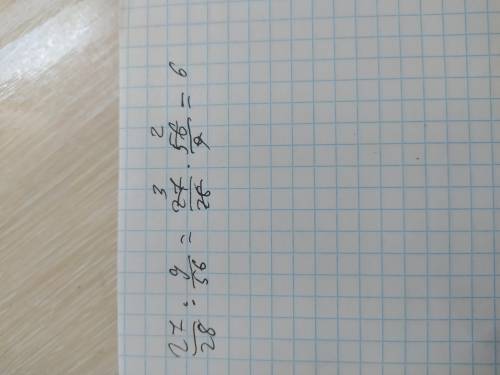 27/28 : 9/56 = 27/28 · 56/9 = 6
3 2